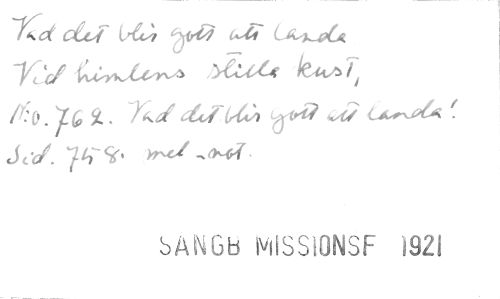 Vad det blir gott att landa
Vid himlens stilla kust,
N:o. 762. Vad det blir gott att landa!
Sid. 758. mel-not.
SANGB MISSIONSF 1921